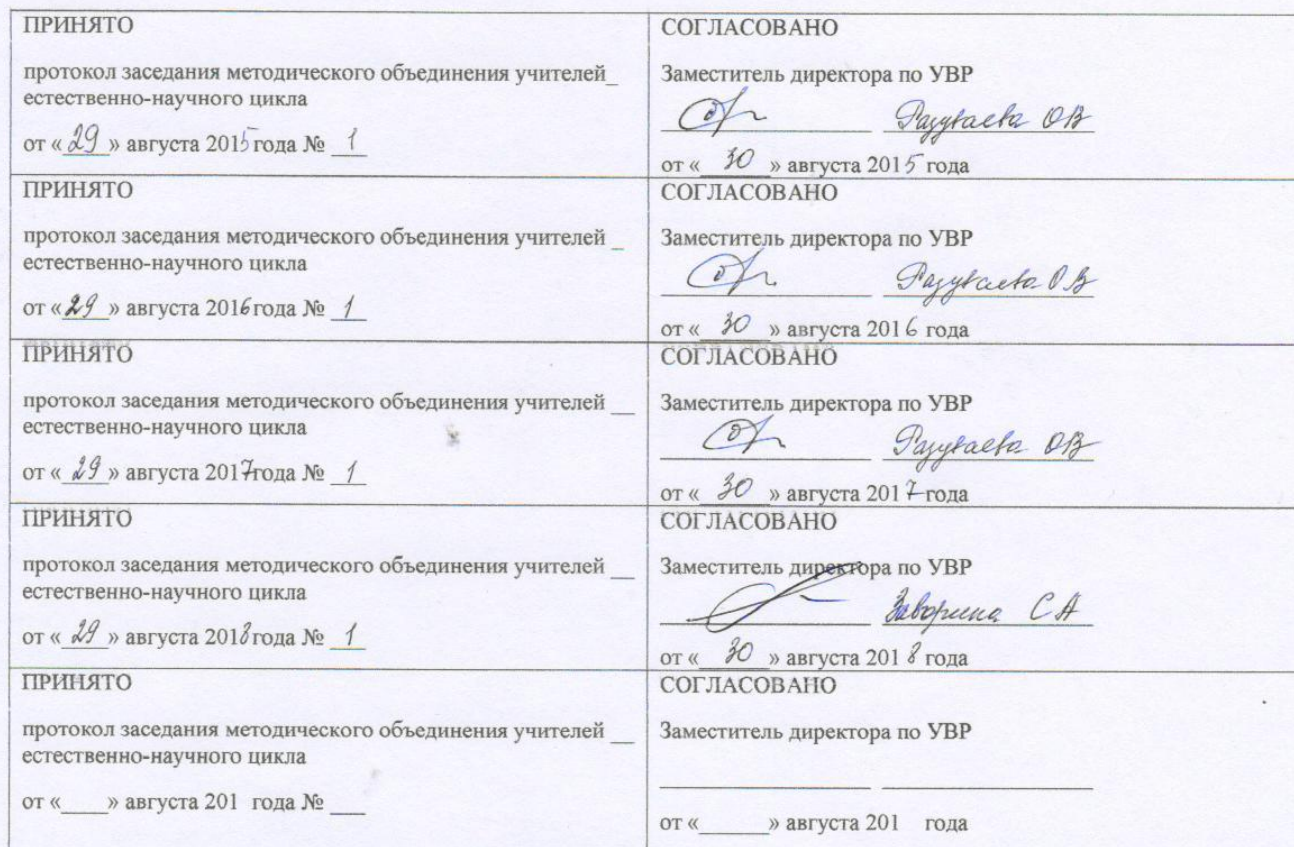 ПРИНЯТО
протокол заседания методического объединения учителей_
естественно-научного цикла
от «29» августа 2015 года № 1
СОГЛАСОВАНО
Заместитель директора по УВР
Разуваева ОВ
от « 30 » августа 2015 года
ПРИНЯТО
протокол заседания методического объединения учителей _
естественно-научного цикла
от «29» августа 2016 года № 1
СОГЛАСОВАНО
Заместитель директора по УВР
Разуваева О.В
от « 30 » августа 2016 года
ПРИНЯТО
протокол заседания методического объединения учителей __
естественно-научного цикла
от «29» августа 2017 года № 1
СОГЛАСОВАНО
Заместитель директора по УВР
Разуваева ОВ
от « 30 » августа 2017 года
ПРИНЯТО
протокол заседания методического объединения учителей __
естественно-научного цикла
от «29» августа 2018 года № 1
СОГЛАСОВАНО
Заместитель директора по УВР
Заворина С А
от « 30 » августа 2018 года
ПРИНЯТО
протокол заседания методического объединения учителей __
естественно-научного цикла
от «____» августа 201 года № ___
СОГЛАСОВАНО
Заместитель директора по УВР
от «______» августа 201 года